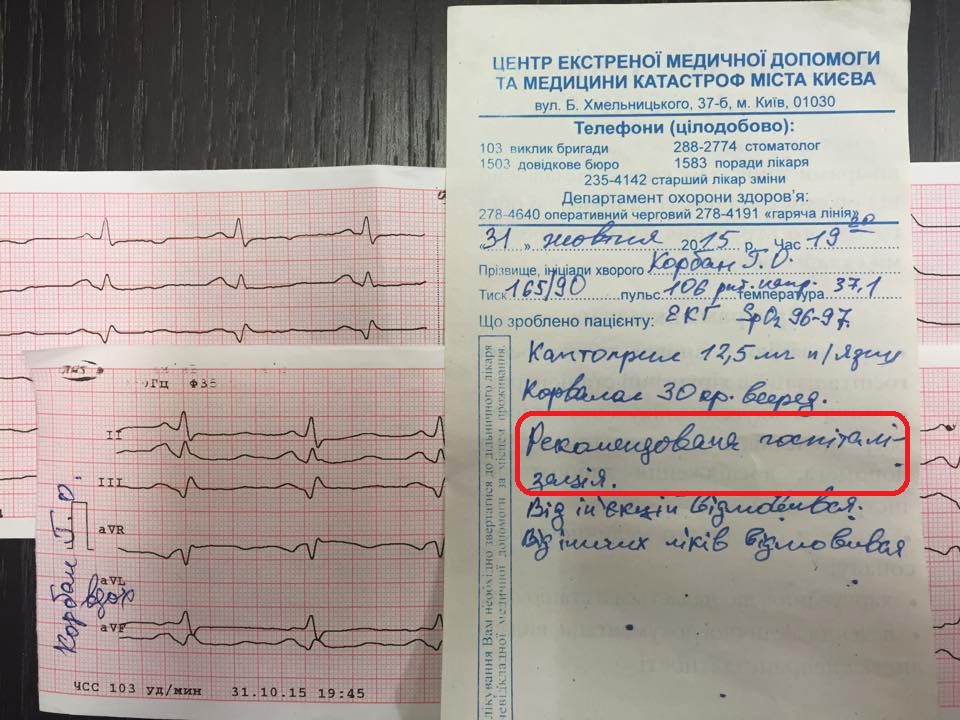 ЦЕНТР ЕКСТРЕНОЇ МЕДИЧНОЇ ДОПОМОГИ
ТА МЕДИЦИНИ КАТАСТРОФ МІСТА КИЄВА
вул. Б. Хмельницького, 37-б, м. Київ, 01030
Телефони (цілодобово):
103 виклик бригади 288-2774 стоматолог
1503 довідкове бюро 1583 поради лікаря
235-4142 старший лікар зміни
Департамент охорони здоров'я:
278-4640 оперативний черговий 278-4191 «гаряча лінія»
«31» жовтня 2015 р. Час 19
Прізвище, ініціали хворого Корбан Г.О.
Тиск 165/90 пульс 106 температура 37,1
Що зроблено пацієнту: ЕКГ SpO2 96-97.
Каптоприл 12,5 мг п/язик
Корвалол 30 кр. всеред.
Рекомендована госпіталі-
зація.
Від ін'єкцій відмовився.
Від інших ліків відмовився
лікування Вам необхідно звертатися до дільничного лікаря
невідкладної медичної допомоги за місцем проживання.
II
III
aVR
aVL
aVF
Корбан Г.О.
вдох
ЧСС 103 уд/мин 31.10.15 19:45